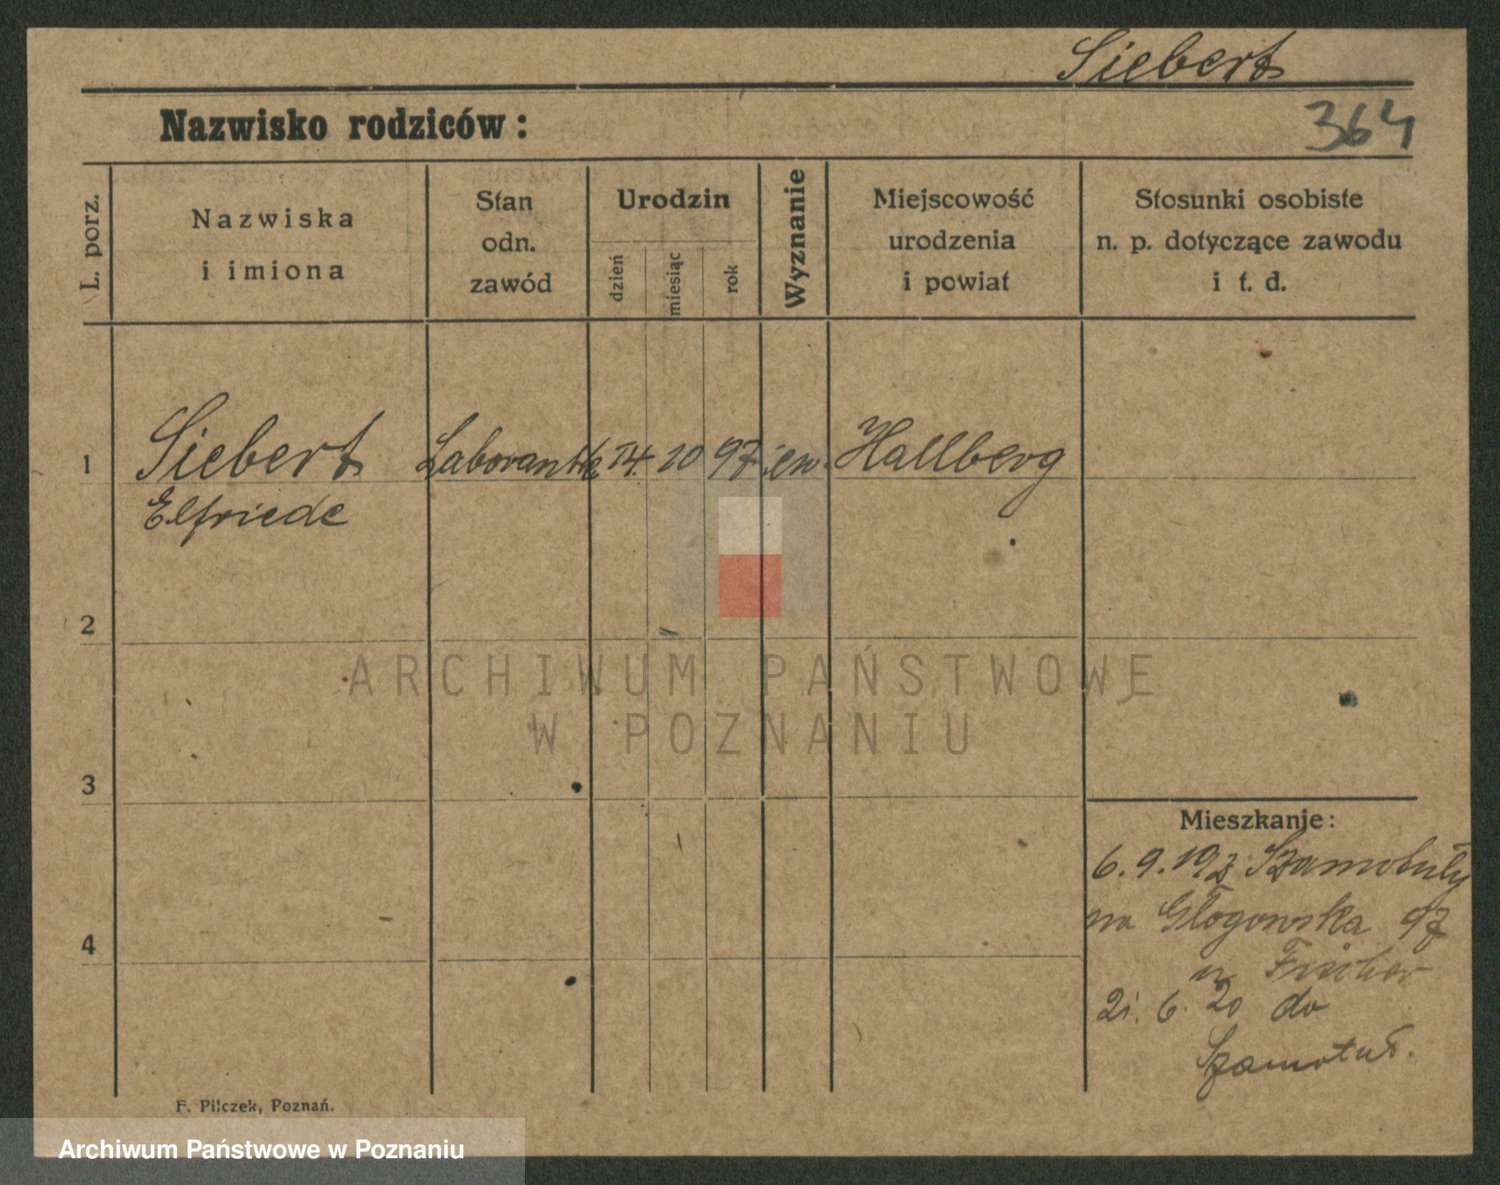 Siebert
364
Nazwisko rodziców:
L. porz.
Nazwiska
i imiona
Stan
odn.
zawód
Urodzin
dzień
miesiąc
rok
Wyznanie
Miejscowość
urodzenia
i powiat
Stosunki osobiste
n. p. dotyczące zawodu
i t. d.
1
Siebert
Elfriede
14. 10 97 ew. Hallberg
2
3
4
Mieszkanie:
6. 9. Szamotuły
na Głogowska 97
u Fischer
21. 6. 20 do
Szamotuł.
F. Pilczek, Poznań.
ARCHIWUM PAŃSTWOWE
W POZNANIU
Archiwum Państwowe w Poznaniu